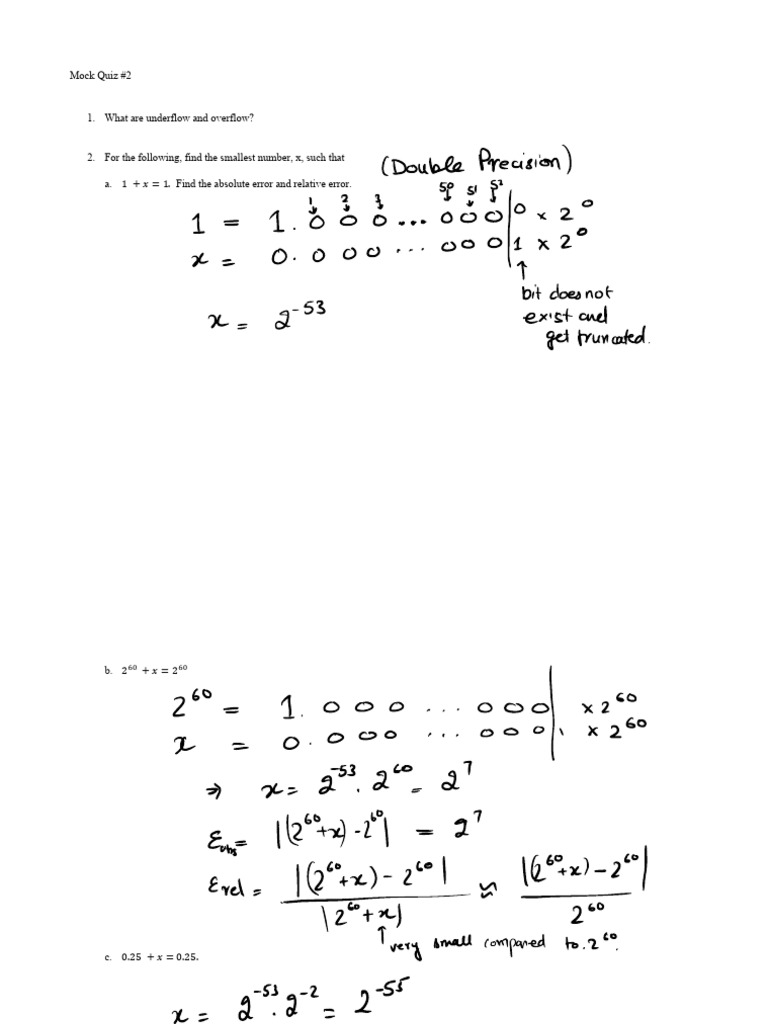 Mock Quiz #2
1. What are underflow and overflow?
2. For the following, find the smallest number, x, such that
(Double Precision)
a. 1 + x = 1. Find the absolute error and relative error.
1 2 3 50 51 52
1 = 1. 0 0 0 ... 0 0 0 | 0 × 2^0
x = 0. 0 0 0 ... 0 0 0 | 1 × 2^0
↑
bit does not
exist and
get truncated.
x = 2^-53
b. 2^60 + x = 2^60
2^60 = 1. 0 0 0 ... 0 0 0 | × 2^60
x = 0. 0 0 0 ... 0 0 0 | 1 × 2^60
⇒ x = 2^-53 . 2^60 = 2^7
Ɛabs = |(2^60+x) - 2^60| = 2^7
Ɛrel = |(2^60+x) - 2^60| / |2^60+x| ≈ |(2^60+x) - 2^60| / 2^60
↑ very small compared to. 2^60.
c. 0.25 + x = 0.25.
x = 2^-53 . 2^-2 = 2^-55